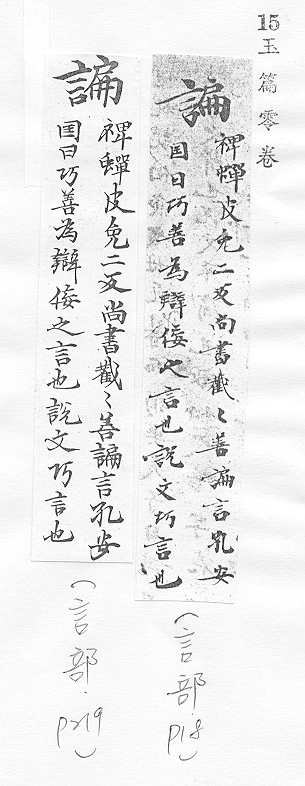 15玉篇零卷
諞
裨蟬皮免二反尚書截〻善諞言孔安
国曰巧善為辯佞之言也說文巧言也
(言部.p18)
諞
裨蟬皮免二反尚書截〻善諞言孔安
国曰巧善為辯佞之言也說文巧言也
(言部.p219)